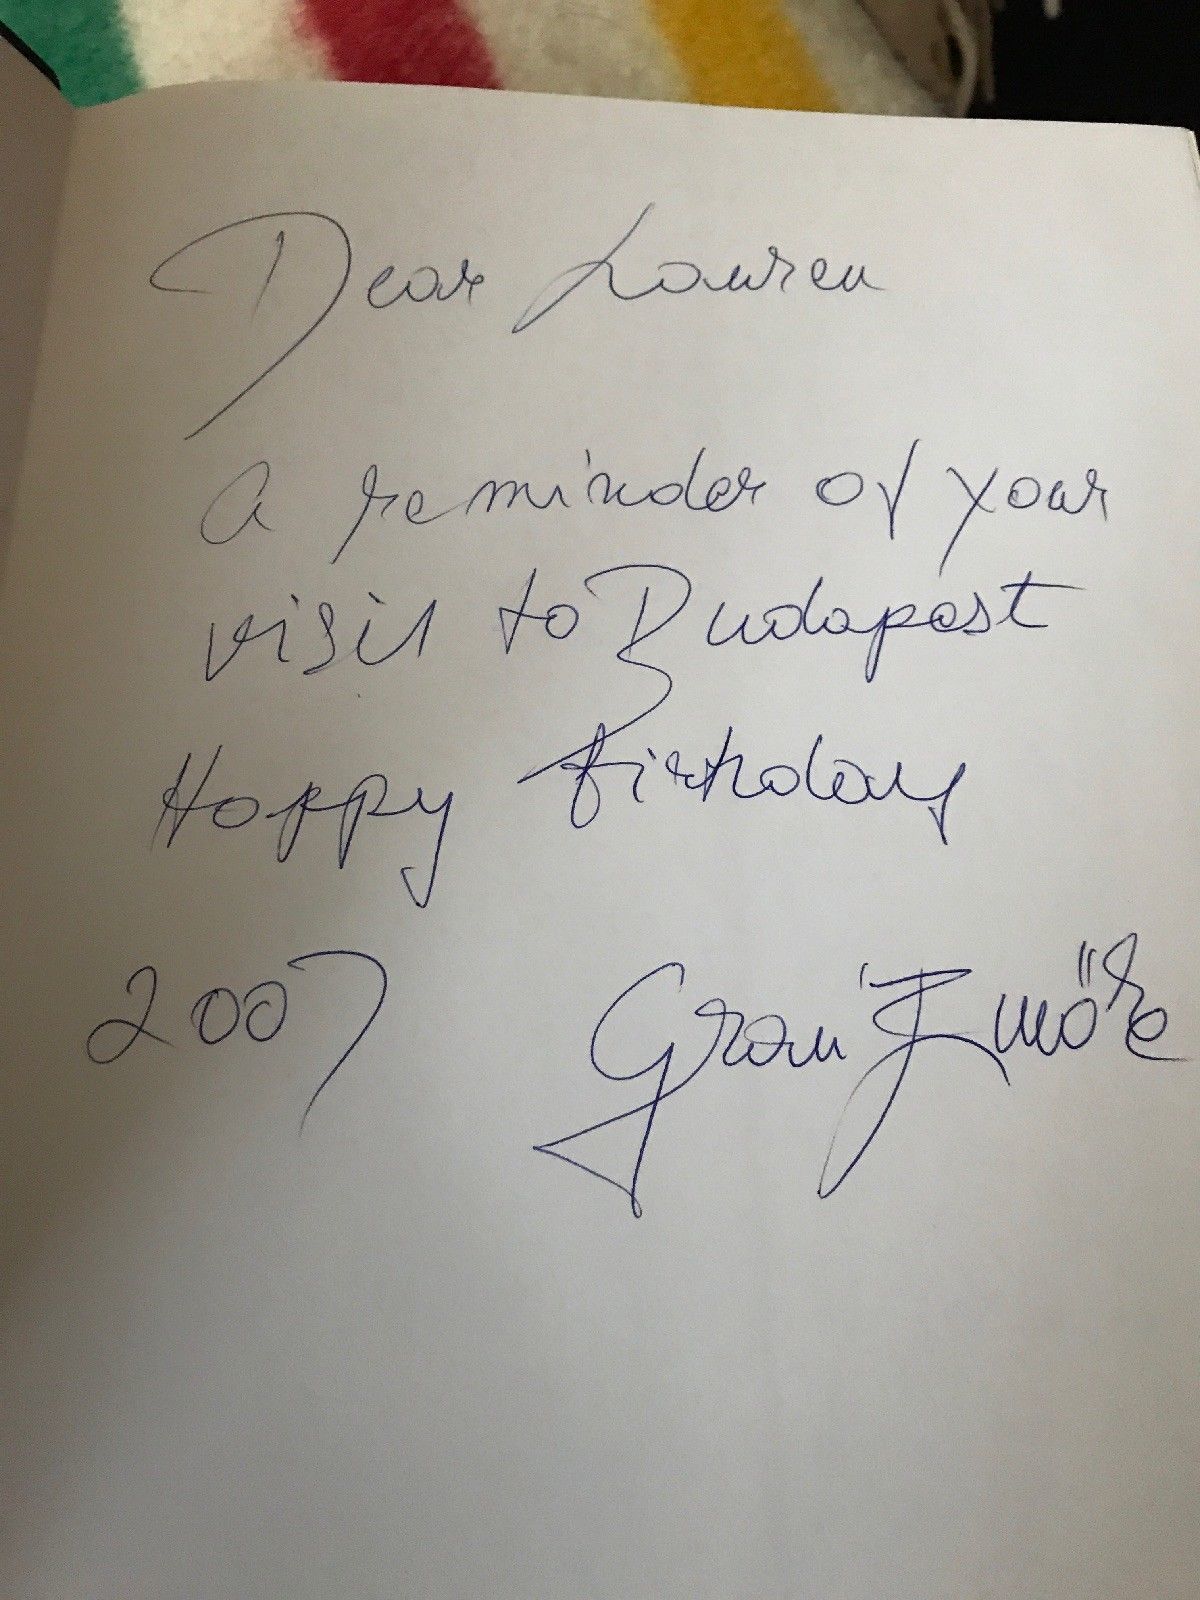 Dear Lauren
A reminder of your
visit to Budapest
Happy Birthday
2007